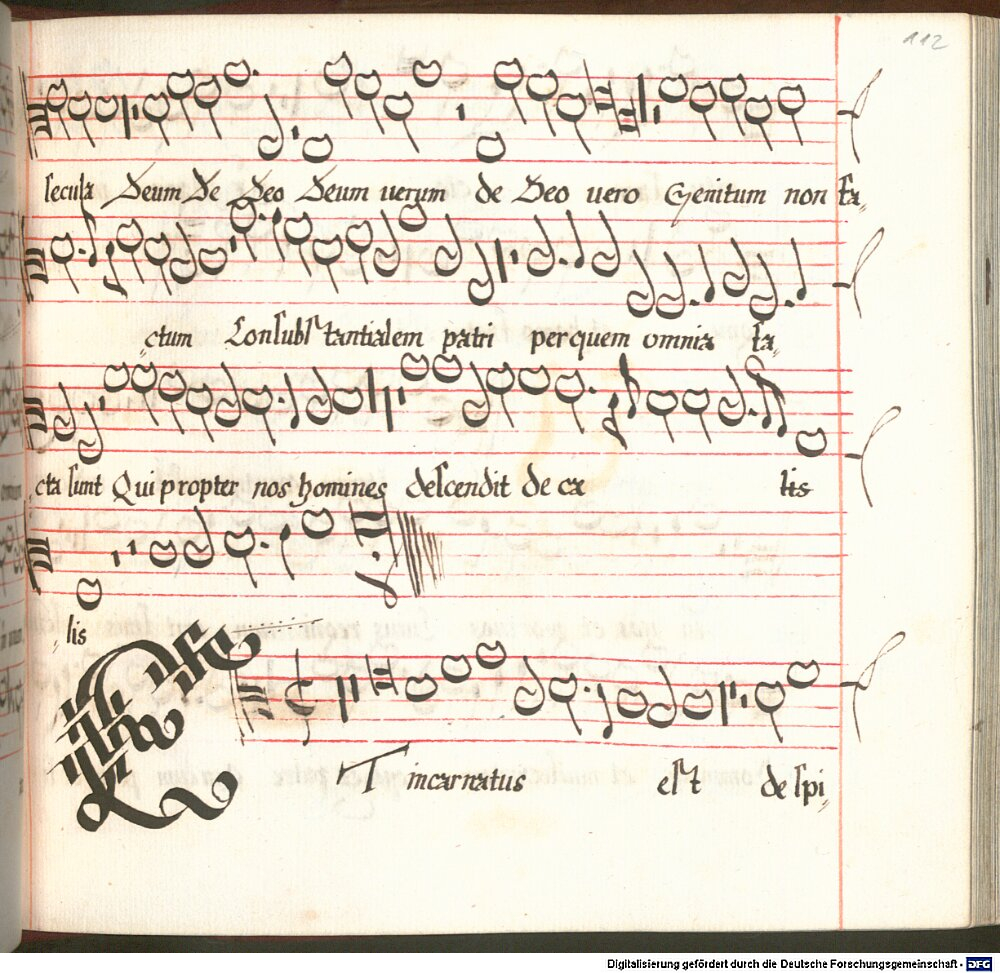 112
secula Deum De Deo Deum uerum de Deo uero Genitum non fa„
„ctum Consubstantialem patri per quem omnia fa„
„cta sunt Qui propter nos homines descendit de cæ lis
„lis
ET incarnatus est de spi„
Digitalisierung gefördert durch die Deutsche Forschungsgemeinschaft - DFG